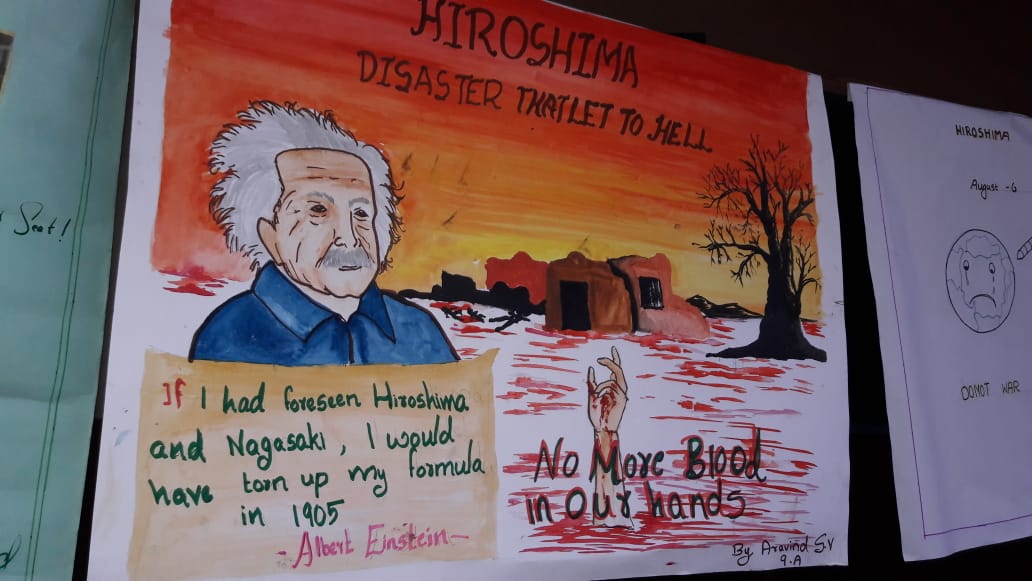 Seat!
HIROSHIMA
DISASTER THAT LET TO HELL
If I had foreseen Hiroshima
and Nagasaki, I would
have torn up my formula
in 1905
- Albert Einstein -
No More Blood
in Our hands
By Aravind S.V
9.A
HIROSHIMA
August - 6
DO NOT WAR